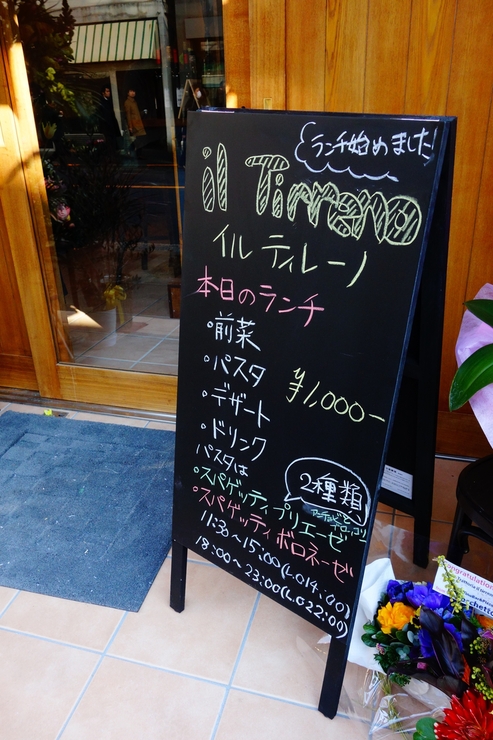 ランチ始めました!
il Tirreno
イル ティレーノ
本日のランチ
・前菜
・パスタ
・デザート
・ドリンク
¥1,000-
パスタは
2種類
・スパゲッティプリエーゼ
・スパゲッティボロネーゼ
11:30~15:00(L.O14:00)
18:00~23:00(L.O22:00)
Congratulations